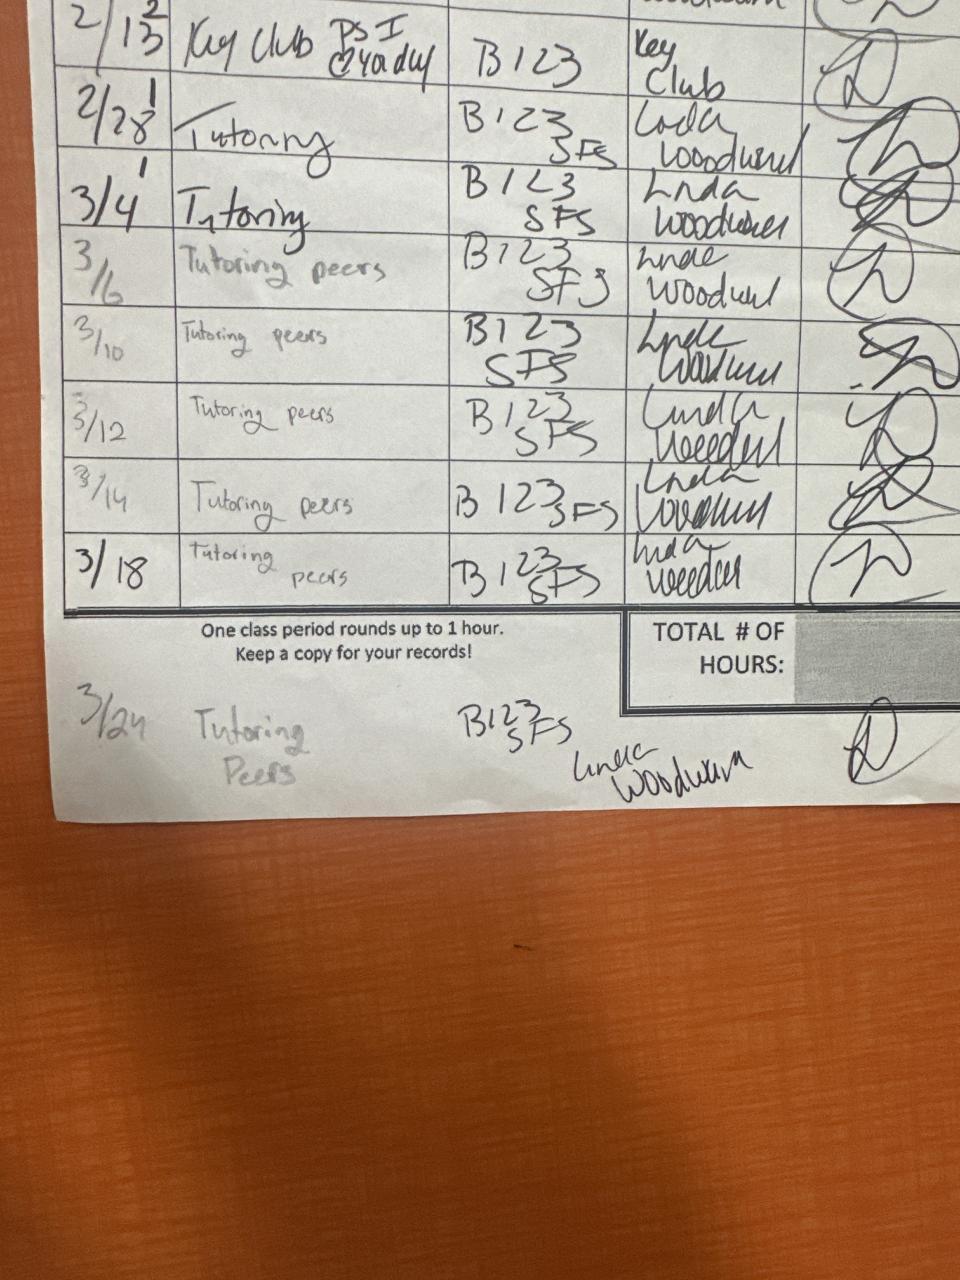 2/13 2
Key Club PS I
B 123
Key
Club
2/28 1
Tutoring
B 123
SFS
Linda
Woodward
3/4 1
Tutoring
B 123
SFS
Linda
Woodward
3/6
Tutoring peers
B 123
SFS
Linda
Woodward
3/10
Tutoring peers
B 123
SFS
Linda
Woodward
3/12
Tutoring peers
B 123
SFS
Linda
Woodward
3/14
Tutoring peers
B 123 SFS
Linda
Woodward
3/18
Tutoring
peers
B 123
SFS
Linda
Woodward
One class period rounds up to 1 hour.
Keep a copy for your records!
TOTAL # OF
HOURS:
3/24
Tutoring
Peers
B123
SFS
Linda
Woodward